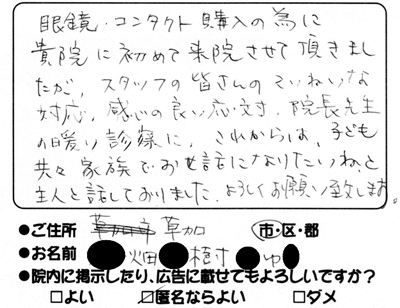 眼鏡・コンタクト購入の為に
貴院に初めて来院させて頂きまし
たが、スタッフの皆さんのていねいな
対応、感じの良い応対、院長先生
の暖い診察に、これからは、子ども
共々家族でお世話になりたいね、と
主人と話しておりました。よろしくお願い致します。
●ご住所 草加市 草加 市・区・郡
●お名前 畑 樹 ゆ
●院内に掲示したり、広告に載せてもよろしいですか?
□よい ☑匿名ならよい □ダメ